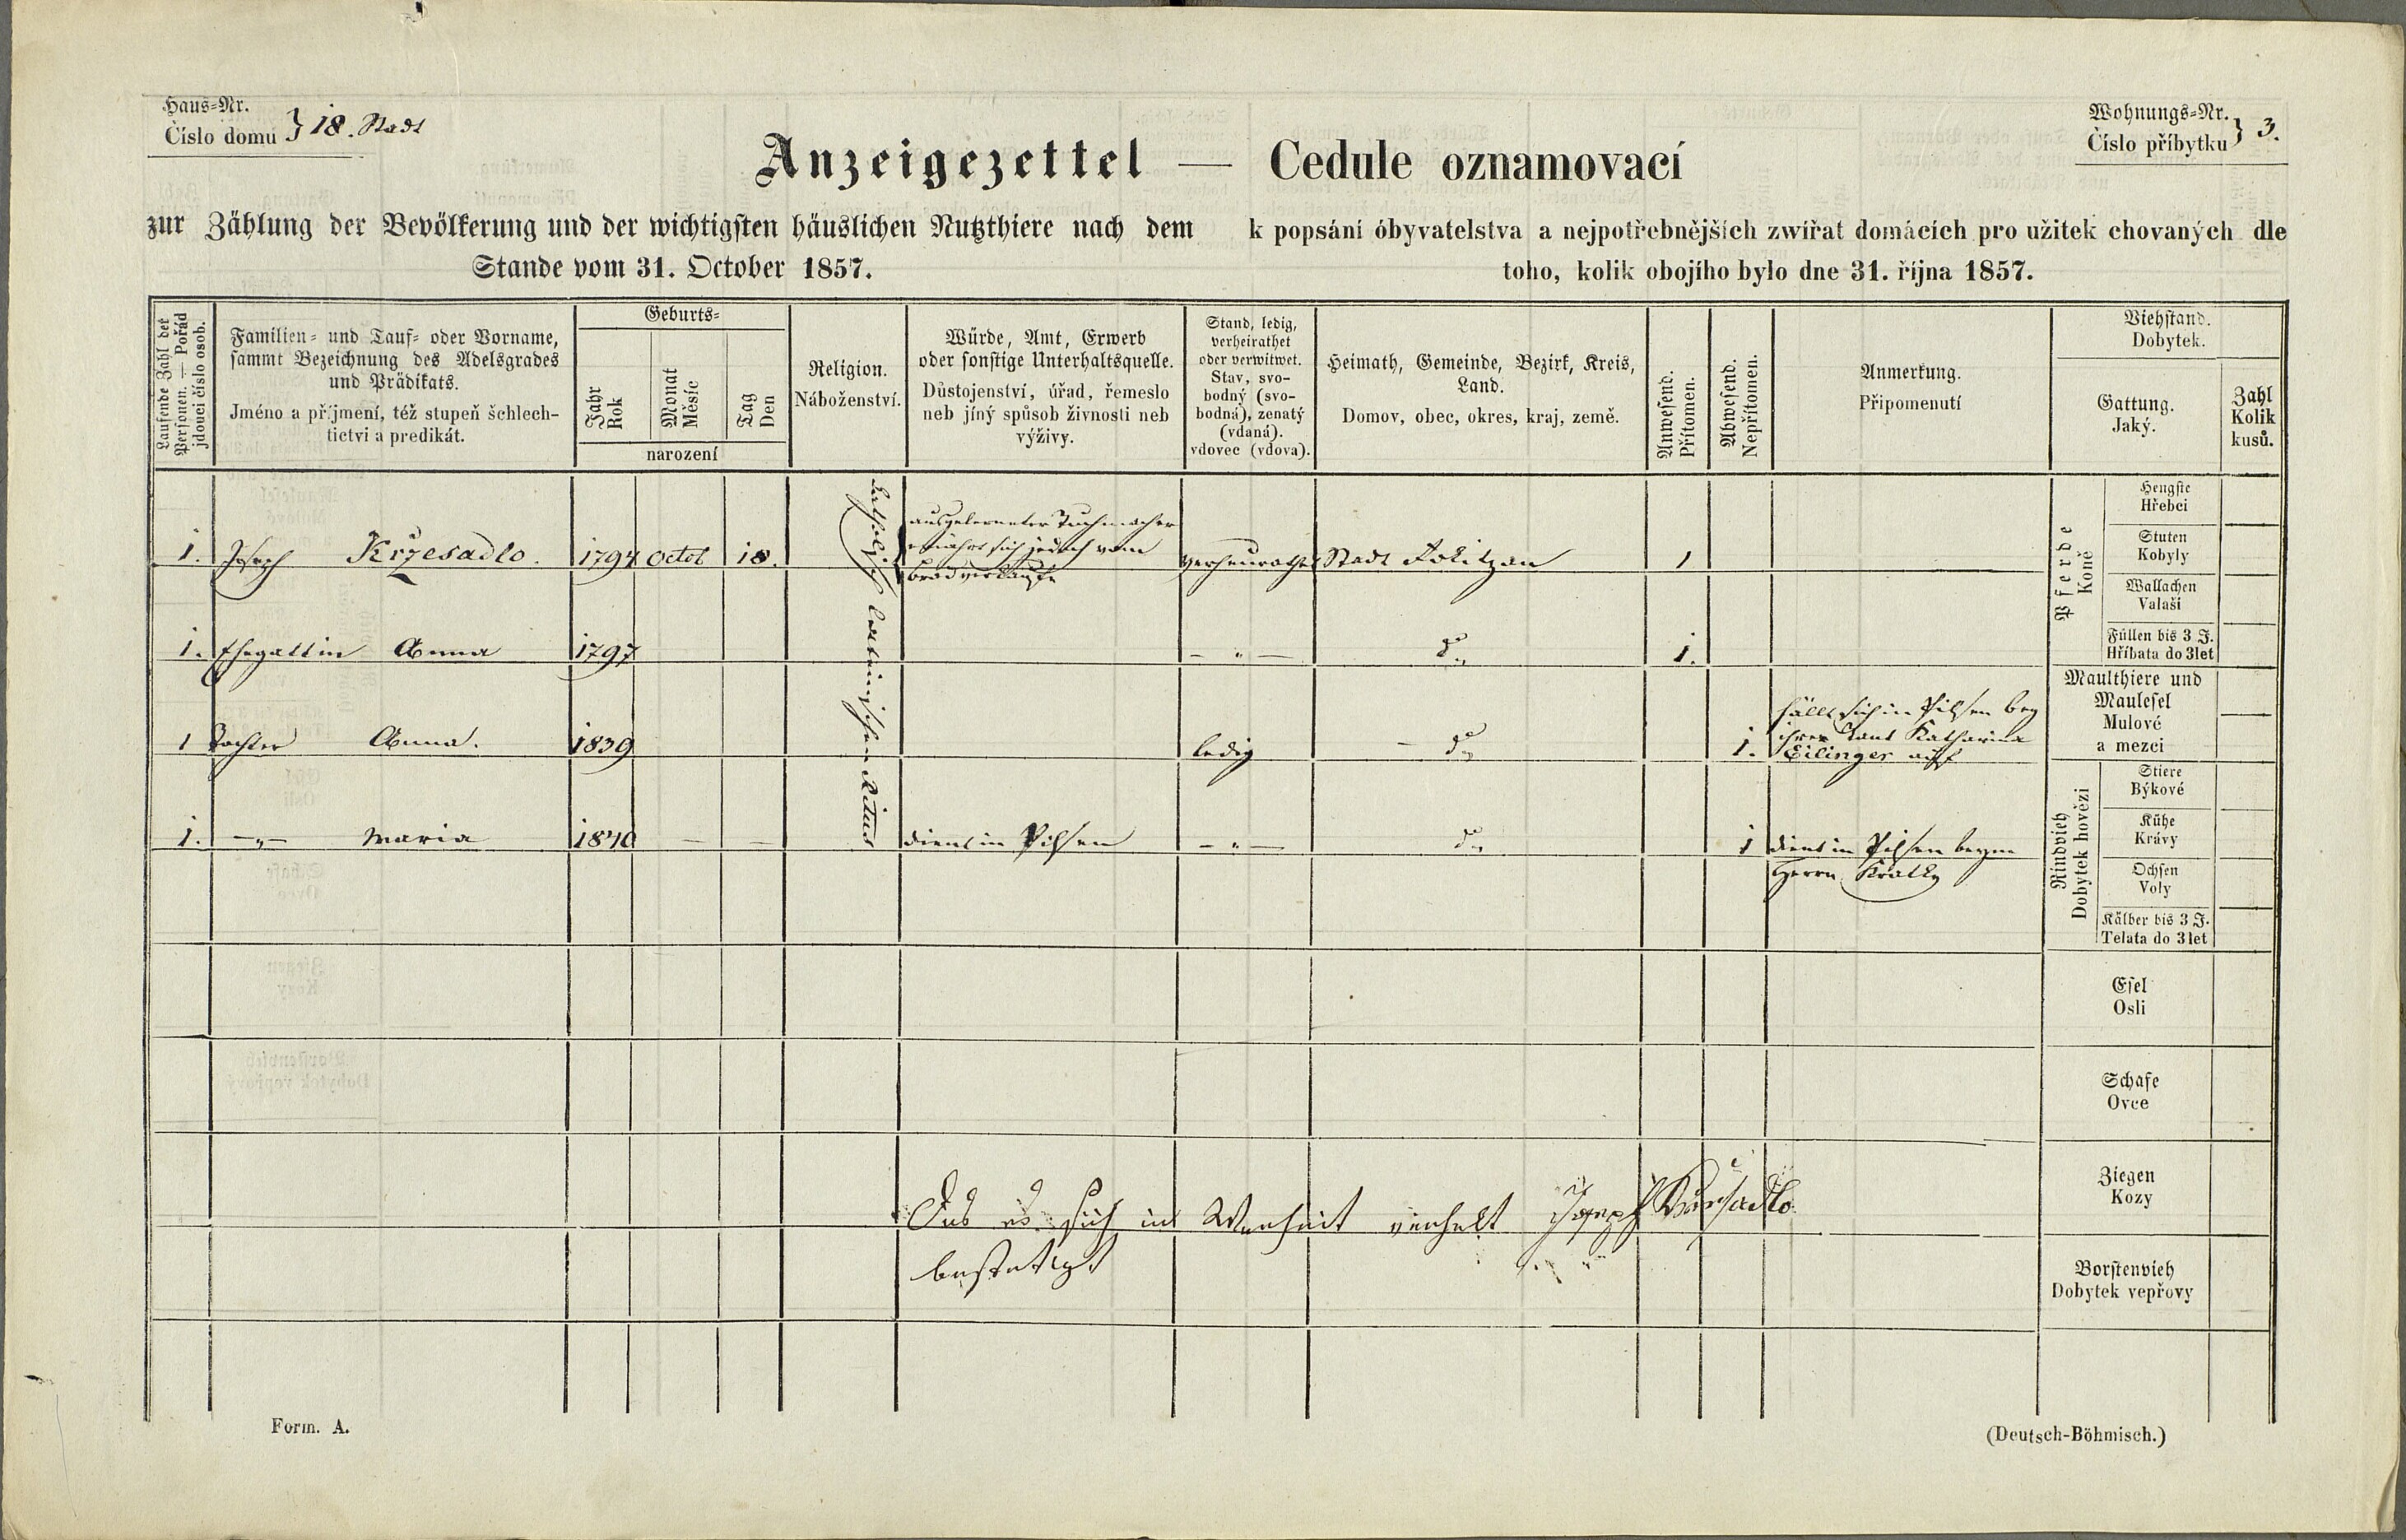 Haus-Nr.
Číslo domu } 18. Stadt
Wohnungs-Nr.
Číslo příbytku } 3.
Anzeigezettel — Cedule oznamovací
zur Zählung der Bevölkerung und der wichtigsten häuslichen Nutzthiere nach dem
Stande vom 31. October 1857.
k popsání óbyvatelstva a nejpotřebnějších zwířat domácích pro užitek chovaných dle
toho, kolik obojího bylo dne 31. října 1857.
Laufende Zahl der
Personen. — Pořád
jdoucí číslo osob.
Familien- und Tauf- oder Vorname,
sammt Bezeichnung des Adelsgrades
und Prädikats.
Jméno a příjmení, též stupeň šchlech-
tictvi a predikát.
Geburts-
Jahr
Rok
Monat
Měsíc
Tag
Den
narození
Religion.
Náboženství.
Würde, Amt, Erwerb
oder sonstige Unterhaltsquelle.
Důstojenství, úřad, řemeslo
neb jíný spůsob živnosti neb
výživy.
Stand, ledig,
verheirathet
oder verwitwet.
Stav, svo-
bodný (svo-
bodná), zenatý
(vdaná).
vdovec (vdova).
Heimath, Gemeinde, Bezirk, Kreis,
Land.
Domov, obec, okres, kraj, země.
Anwesend.
Přítomen.
Abwesend.
Nepřítomen.
Anmerkung.
Připomenutí
Viehstand.
Dobytek.
Gattung.
Jaký.
Zahl
Kolik
kusů.
1. Joseph Kržesadlo. 1794 Octob 18.
ausgelernter Tuchmacher
ernährt sich jedoch vom
brodverkaufe
verheurathet Stadt Rokitzan 1
Katholisch lateinischen Ritus
1. Ehegattin Anna 1797 — " — do 1.
1 Tochter Anna. 1839 ledig — do 1.
hällt sich in Pilsen bey
ihrer Tant Katharina
Eilinger auf
1. —"— Maria 1840 — — dient in Pilsen — " — do 1 dient in Pilsen beym
Herrn Kralky
Pferde
Koně
Hengste
Hřebci
Stuten
Kobyly
Wallachen
Valaši
Füllen bis 3 J.
Hříbata do 3 let
Maulthiere und
Maulesel
Mulové
a mezci
Rindvieh
Dobytek hovězi
Stiere
Býkové
Kühe
Krávy
Ochsen
Voly
Kälber bis 3 J.
Telata do 3 let
Esel
Osli
Schafe
Ovce
Ziegen
Kozy
Borstenvieh
Dobytek vepřovy
Das es sich in Warheit verhelt Joseph Kržesadlo
bestetigt
Form. A.
(Deutsch-Böhmisch.)